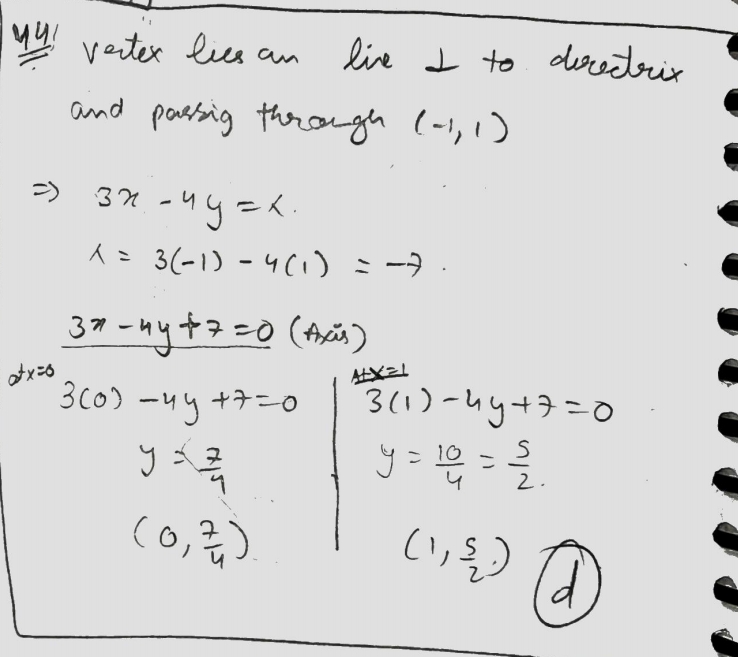 44! vertex lies an line ⊥ to directrix
and passig through (-1, 1)
⇒ 3x - 4y = λ.
λ = 3(-1) - 4(1) = -7.
3x - 4y + 7 = 0 (Axis)
at x=0
3(0) - 4y + 7 = 0
y = 7/4
(0, 7/4)
At x=1
3(1) - 4y + 7 = 0
y = 10/4 = 5/2.
(1, 5/2)
d